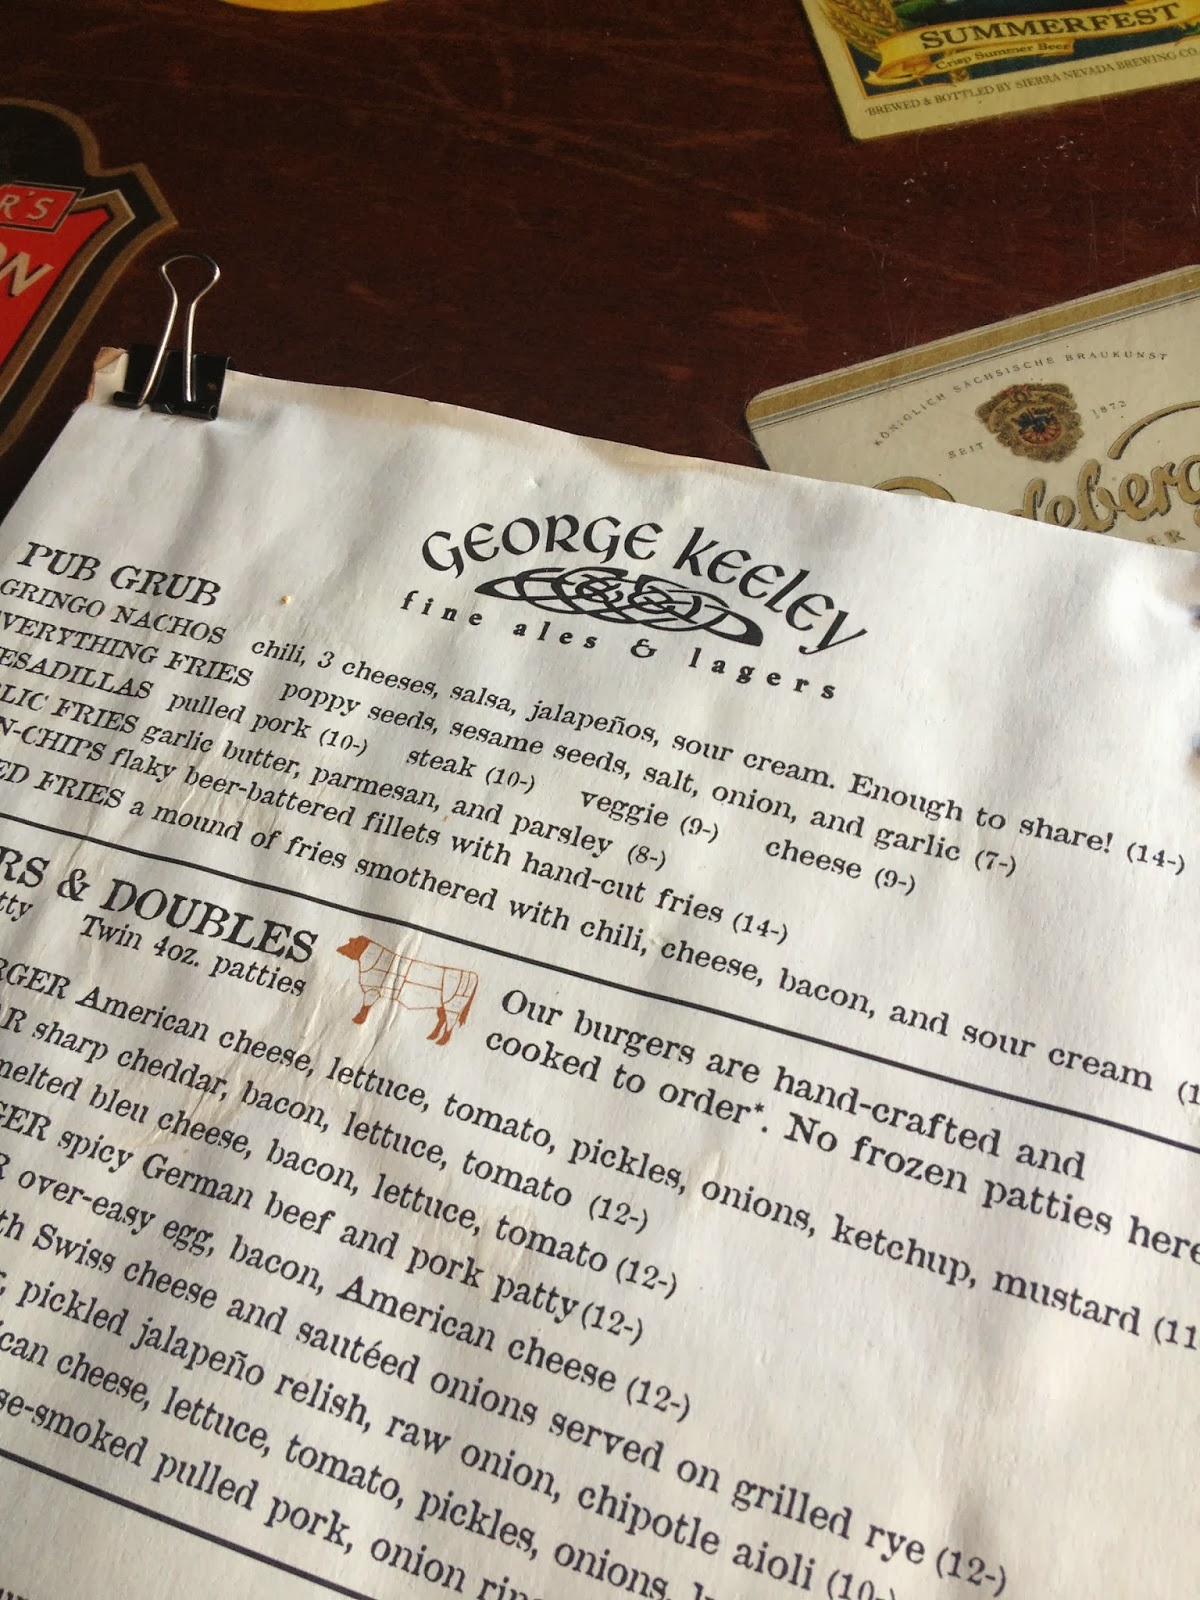 SUMMERFEST
Crisp Summer Beer
BREWED & BOTTLED BY SIERRA NEVADA BREWING CO.
R'S
ON
KÖNIGLICH SÄCHSISCHE BRAUKUNST
SEIT 1872
deberg
GEORGE KEELEY
fine ales & lagers
PUB GRUB
GRINGO NACHOS chili, 3 cheeses, salsa, jalapeños, sour cream. Enough to share! (14-)
VERYTHING FRIES poppy seeds, sesame seeds, salt, onion, and garlic (7-)
ESADILLAS pulled pork (10-) steak (10-) veggie (9-) cheese (9-)
LIC FRIES garlic butter, parmesan, and parsley (8-)
N-CHIPS flaky beer-battered fillets with hand-cut fries (14-)
ED FRIES a mound of fries smothered with chili, cheese, bacon, and sour cream (1
RS & DOUBLES
tty Twin 4oz. patties
Our burgers are hand-crafted and
cooked to order*. No frozen patties here
RGER American cheese, lettuce, tomato, pickles, onions, ketchup, mustard (11
AR sharp cheddar, bacon, lettuce, tomato (12-)
melted bleu cheese, bacon, lettuce, tomato (12-)
GER spicy German beef and pork patty (12-)
R over-easy egg, bacon, American cheese (12-)
th Swiss cheese and sautéed onions served on grilled rye (12-)
, pickled jalapeño relish, raw onion, chipotle aioli (10-)
ican cheese, lettuce, tomato, pickles, onions,
se-smoked pulled pork, onion rin